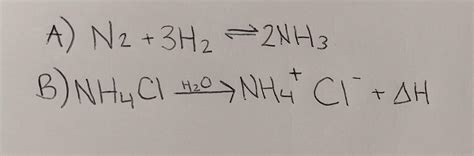 A) N₂ + 3H₂ ⇌ 2NH₃
B) NH₄Cl —H₂O→ NH₄⁺ Cl⁻ + ΔH